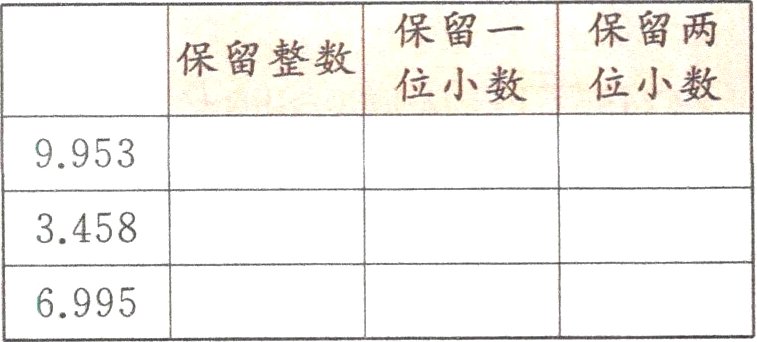 保留整数
保留一
位小数
保留两
位小数
9.953
3.458
6.995